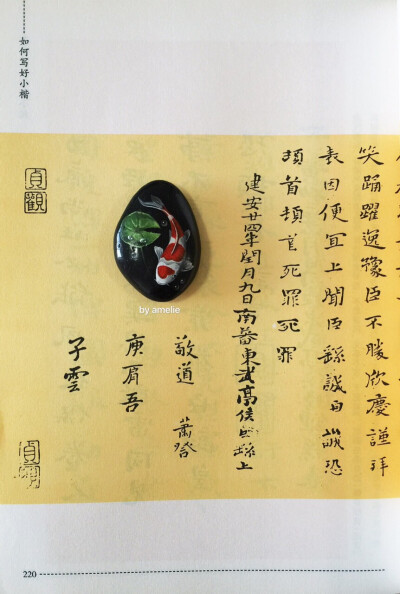 如何写好小楷
笑踊躍逸豫臣不勝欣慶謹拜
表因便宜上聞臣繇誠惶誠恐
頓首頓首死罪死罪
建安廿四年閏月九日南蕃東武亭侯臣繇上
敬道
庾肩吾
子雲
貞觀
貞觀
by amelie
220